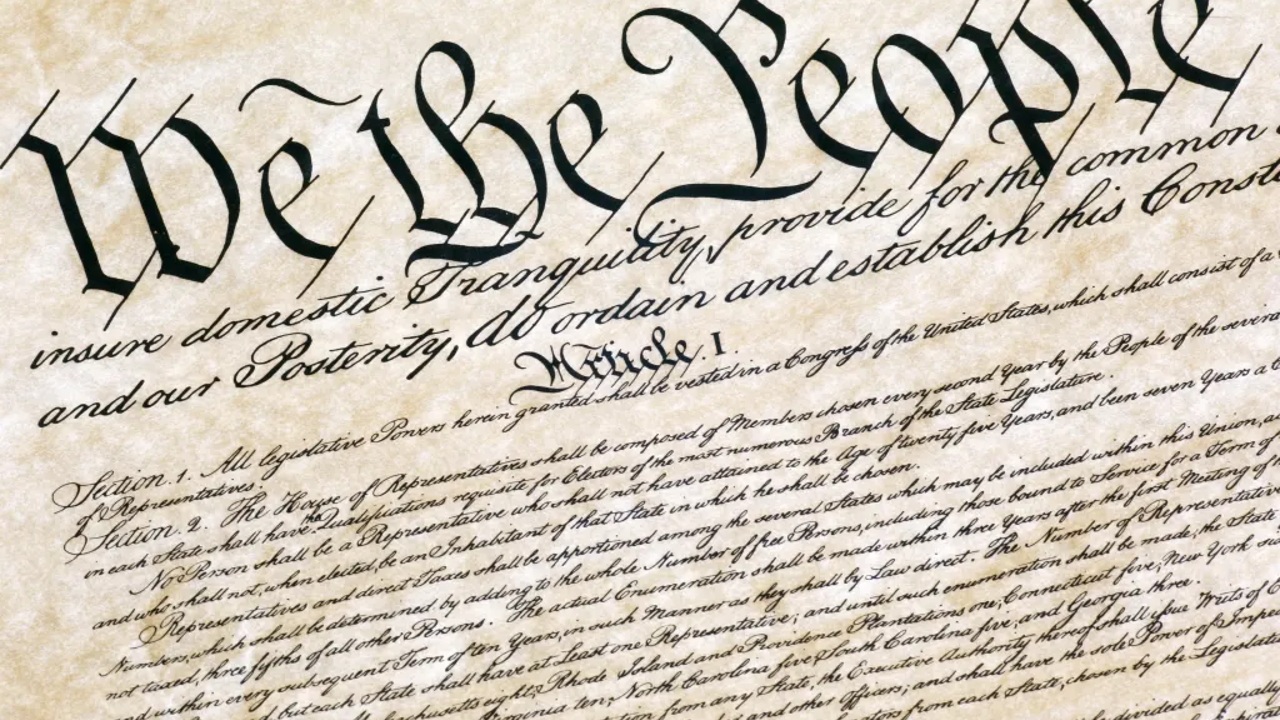 We the People
insure domestic Tranquility, provide for the common
and our Posterity, do ordain and establish this
Article. I.
Section. 1. All legislative Powers herein granted shall be vested in a Congress of the United States, which shall consist of a
of Representatives.
Section. 2. The House of Representatives shall be composed of Members chosen every second Year by the People of the several
in each State shall have the Qualifications requisite for Electors of the most numerous Branch of the State Legislature.
No Person shall be a Representative who shall not have attained to the Age of twenty five Years, and been seven Years a
and who shall not, when elected, be an Inhabitant of that State in which he shall be chosen.
Representatives and direct Taxes shall be apportioned among the several States which may be included within this Union,
Numbers, which shall be determined by adding to the whole Number of free Persons, including those bound to Service for a Term of
not taxed, three fifths of all other Persons. The actual Enumeration shall be made within three Years after the first Meeting of
and within every subsequent Term of ten Years, in such Manner as they shall by Law direct. The Number of Representatives
but each State shall have at Least one Representative; and until such enumeration shall be made, the State
eight, Rhode Island and Providence Plantations one, Connecticut five, New York
ten, North Carolina five, South Carolina five, and Georgia three.
from any State, the Executive Authority thereof shall issue Writs of
and other Officers; and shall have the sole Power of
from each State, chosen by the
divided as equally